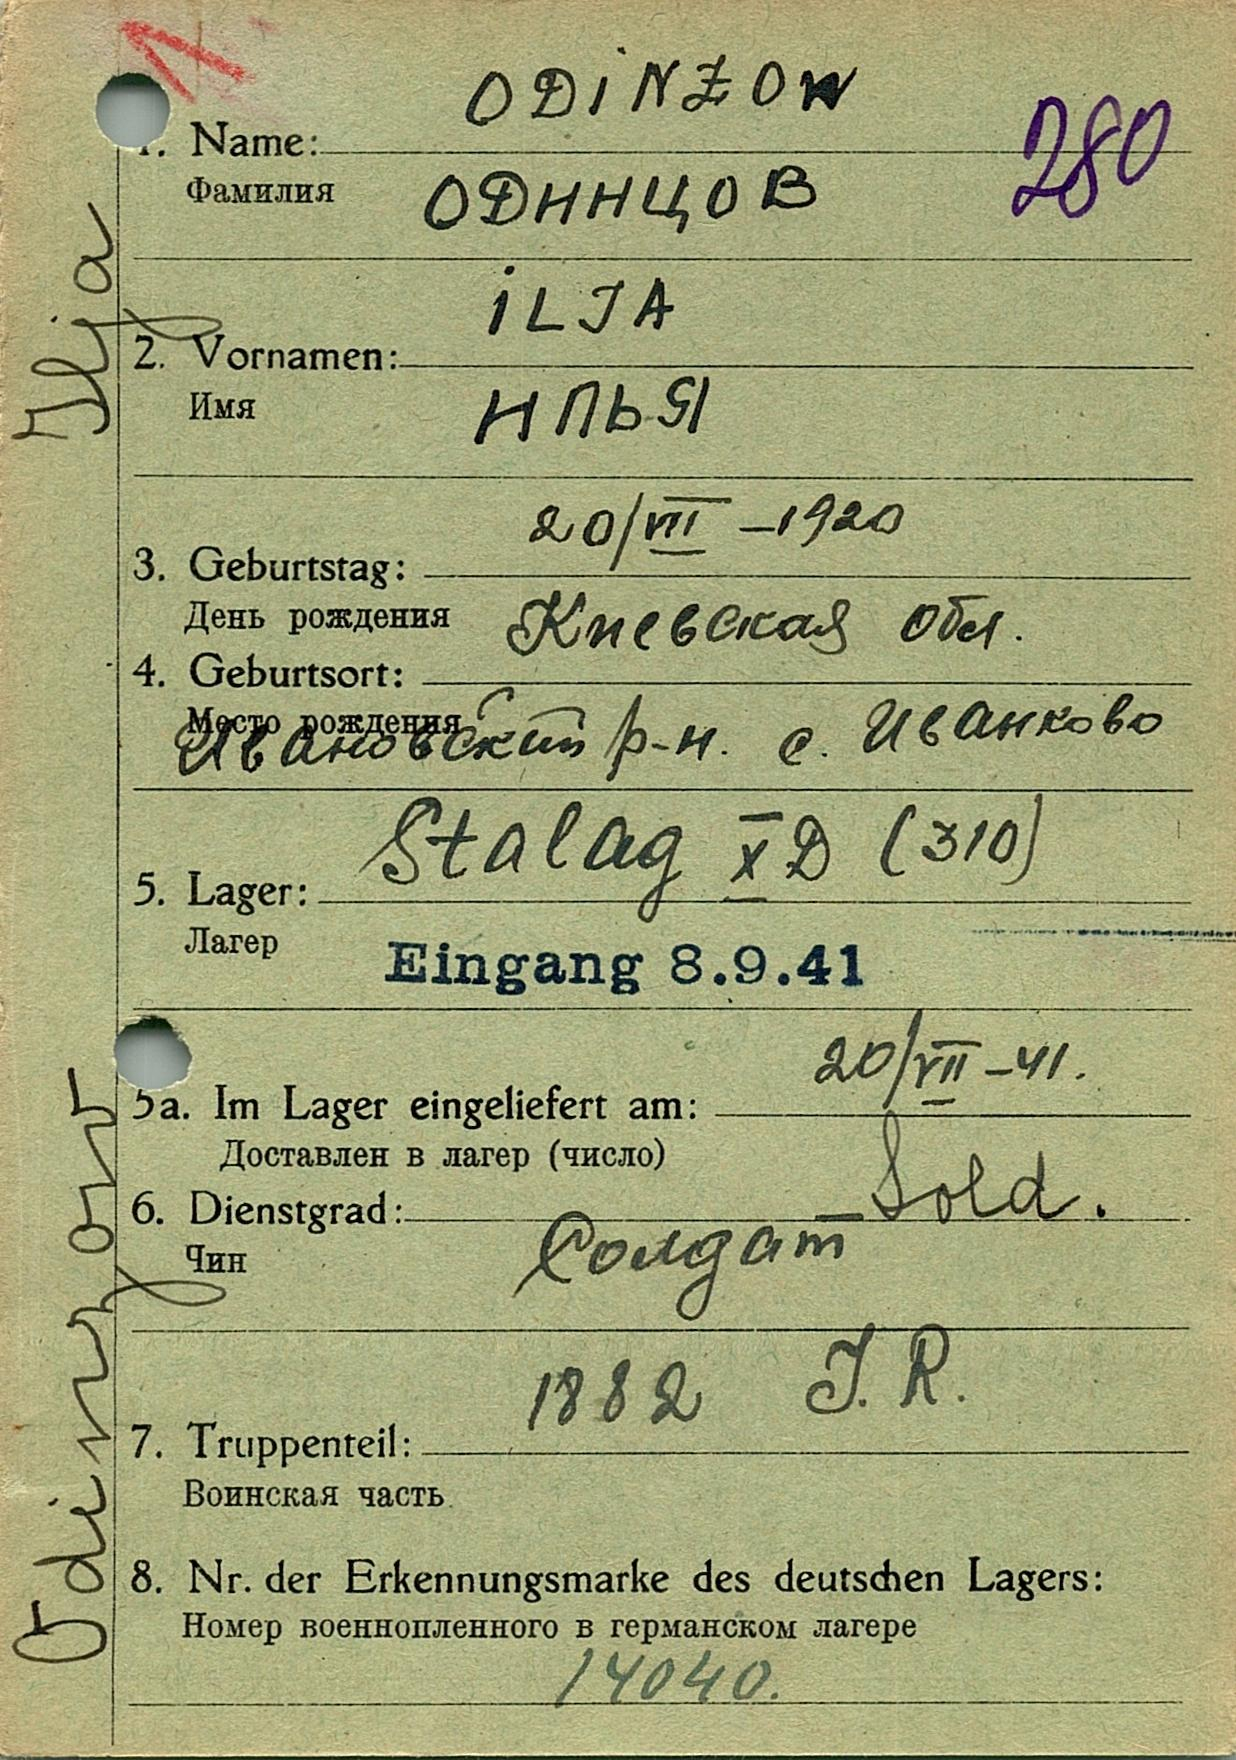 ODiNZOW
1. Name:
280
Фамилия ОДИНЦОВ
iLJA
2. Vornamen:
Имя ИЛЬЯ
20/VIII – 1920
3. Geburtstag:
День рождения Киевская обл.
4. Geburtsort:
Место рождения
Ивановский р-н. с. Иванково
Stalag XD (310)
5. Lager:
Лагер
Eingang 8.9.41
20/VII – 41.
5a. Im Lager eingeliefert am:
Доставлен в лагер (число)
Sold.
6. Dienstgrad:
Чин Солдат
1882 J. R.
7. Truppenteil:
Воинская часть
8. Nr. der Erkennungsmarke des deutschen Lagers:
Номер военнопленного в германском лагере
14040.
Odinzow Ilja